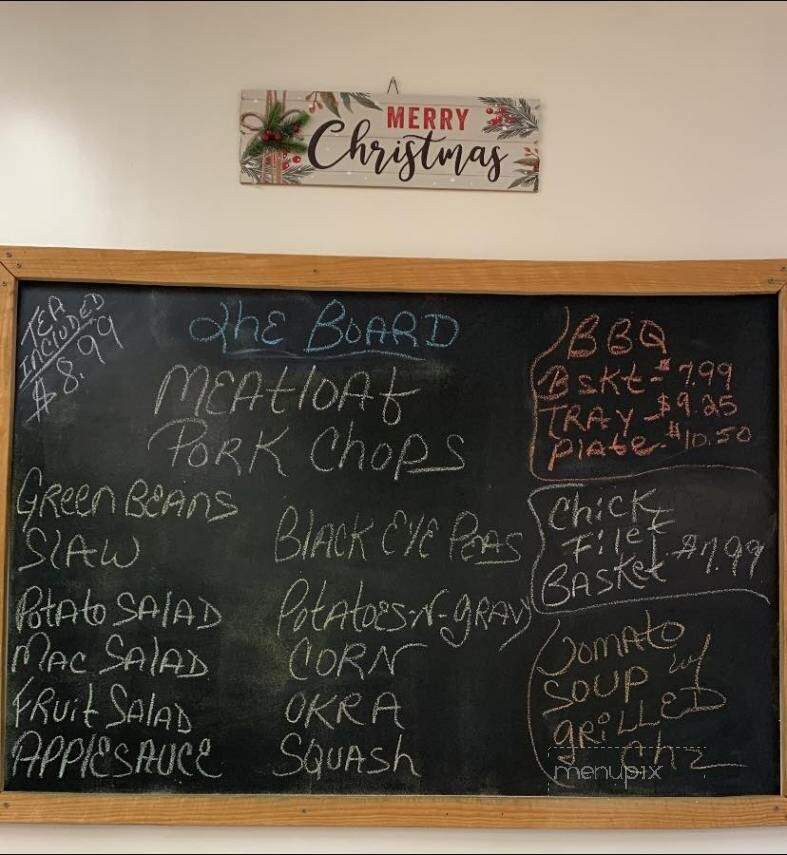 MERRY
Christmas
TEA
INCLUDED
$8.99
The BOARD
MEAtloaf
PORK ChOPS
GREEN BEANS
SLAW
PotAto SALAD
MAC SALAD
FRUit SALAD
APPlESAUCE
BLACK EYE PEAS
PotAtoES-N-gRAVY
CORN
OKRA
SQUASh
BBQ
BSKt-$7.99
TRAY-$9.25
PlAtE-$10.50
Chick
FilEt
BASKEt $7.99
TomAto
SOUP w/
gRiLLED
Chz
menupix